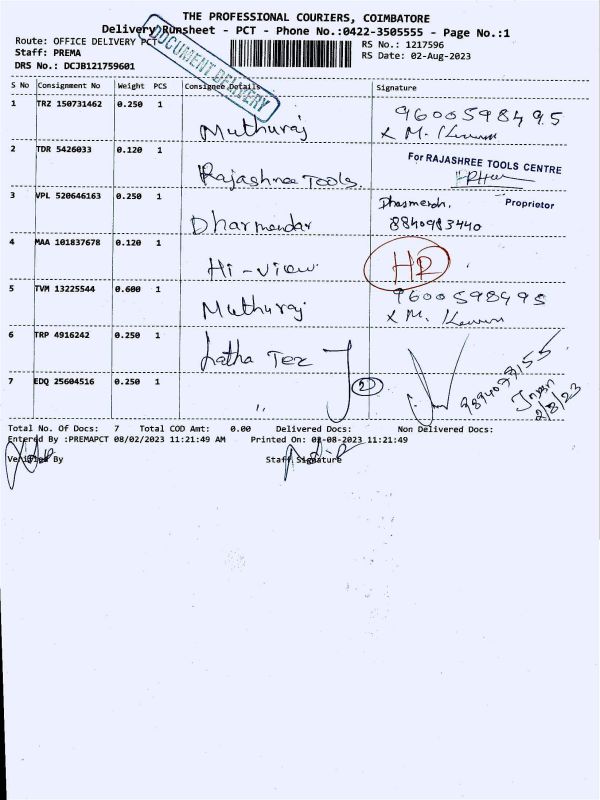 THE PROFESSIONAL COURIERS, COIMBATORE
Delivery Runsheet - PCT - Phone No.:0422-3505555 - Page No.:1
Route: OFFICE DELIVERY PCT
RS No.: 1217596
Staff: PREMA
RS Date: 02-Aug-2023
DRS No.: DCJB121759601
DOCUMENT DELIVERY
S No Consignment No Weight PCS Consignee Details Signature
1 TRZ 150731462 0.250 1 Muthuraj 9600598495
2 TDR 5426033 0.120 1 Rajashree Tools. For RAJASHREE TOOLS CENTRE
Proprietor
3 VPL 520646163 0.250 1 Dharmendar 8840983440
4 MAA 101837678 0.120 1 Hi-View HP
5 TVM 13225544 0.600 1 Muthuraj 9600598495
6 TRP 4916242 0.250 1 Latha Tex
2
7 EDQ 25604516 0.250 1 "
2/8/23
Total No. Of Docs: 7 Total COD Amt: 0.00 Delivered Docs: Non Delivered Docs:
Entered By :PREMAPCT 08/02/2023 11:21:49 AM Printed On: 02-08-2023 11:21:49
Verified By Staff Signature